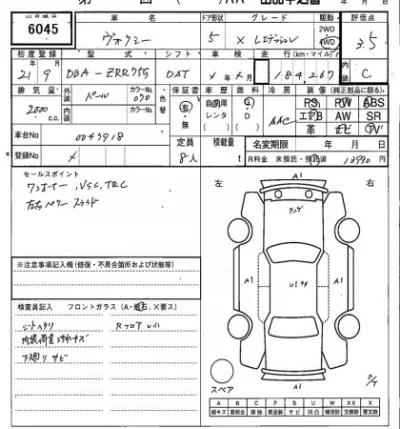 6045
車名
ドア形状
グレード
駆動
評価点
ヴォクシー
5
X Lエディション
2WD
4WD
3.5
初度登録
型式
シフト
車検
走行
(km・マイル)
内装
21年9月
DBA-ZRR75G
DAT
184,267
C
排気量
外装
カラーNo.
色替
保証書
車歴
燃料
冷房
装備(純正部品に限る)
2000
c.c.
パール
070
有・無
自家用
レンタ
G・D
AAC
PS PW ABS
エアB AW SR
革 TV
車台No
0045918
定員
8人
積載量
t
名変期限
年 月 日
登録No
R料金 未預託・預託済
13990円
セールスポイント
ワンオーナー、VSC、TRC
左右パワースライド
左
右
A1
A1
A1
A1
※注意事項記入欄(修復・不具合箇所および状態等)
検査員記入
フロントガラス(A・飛石、×要ス)
シートヘタリ
Rフロア
下廻りサビ
スペア
A B C P S U W X XX
線キズ 腐食 要塗装 サビ 凹凸 補修跡 交換跡